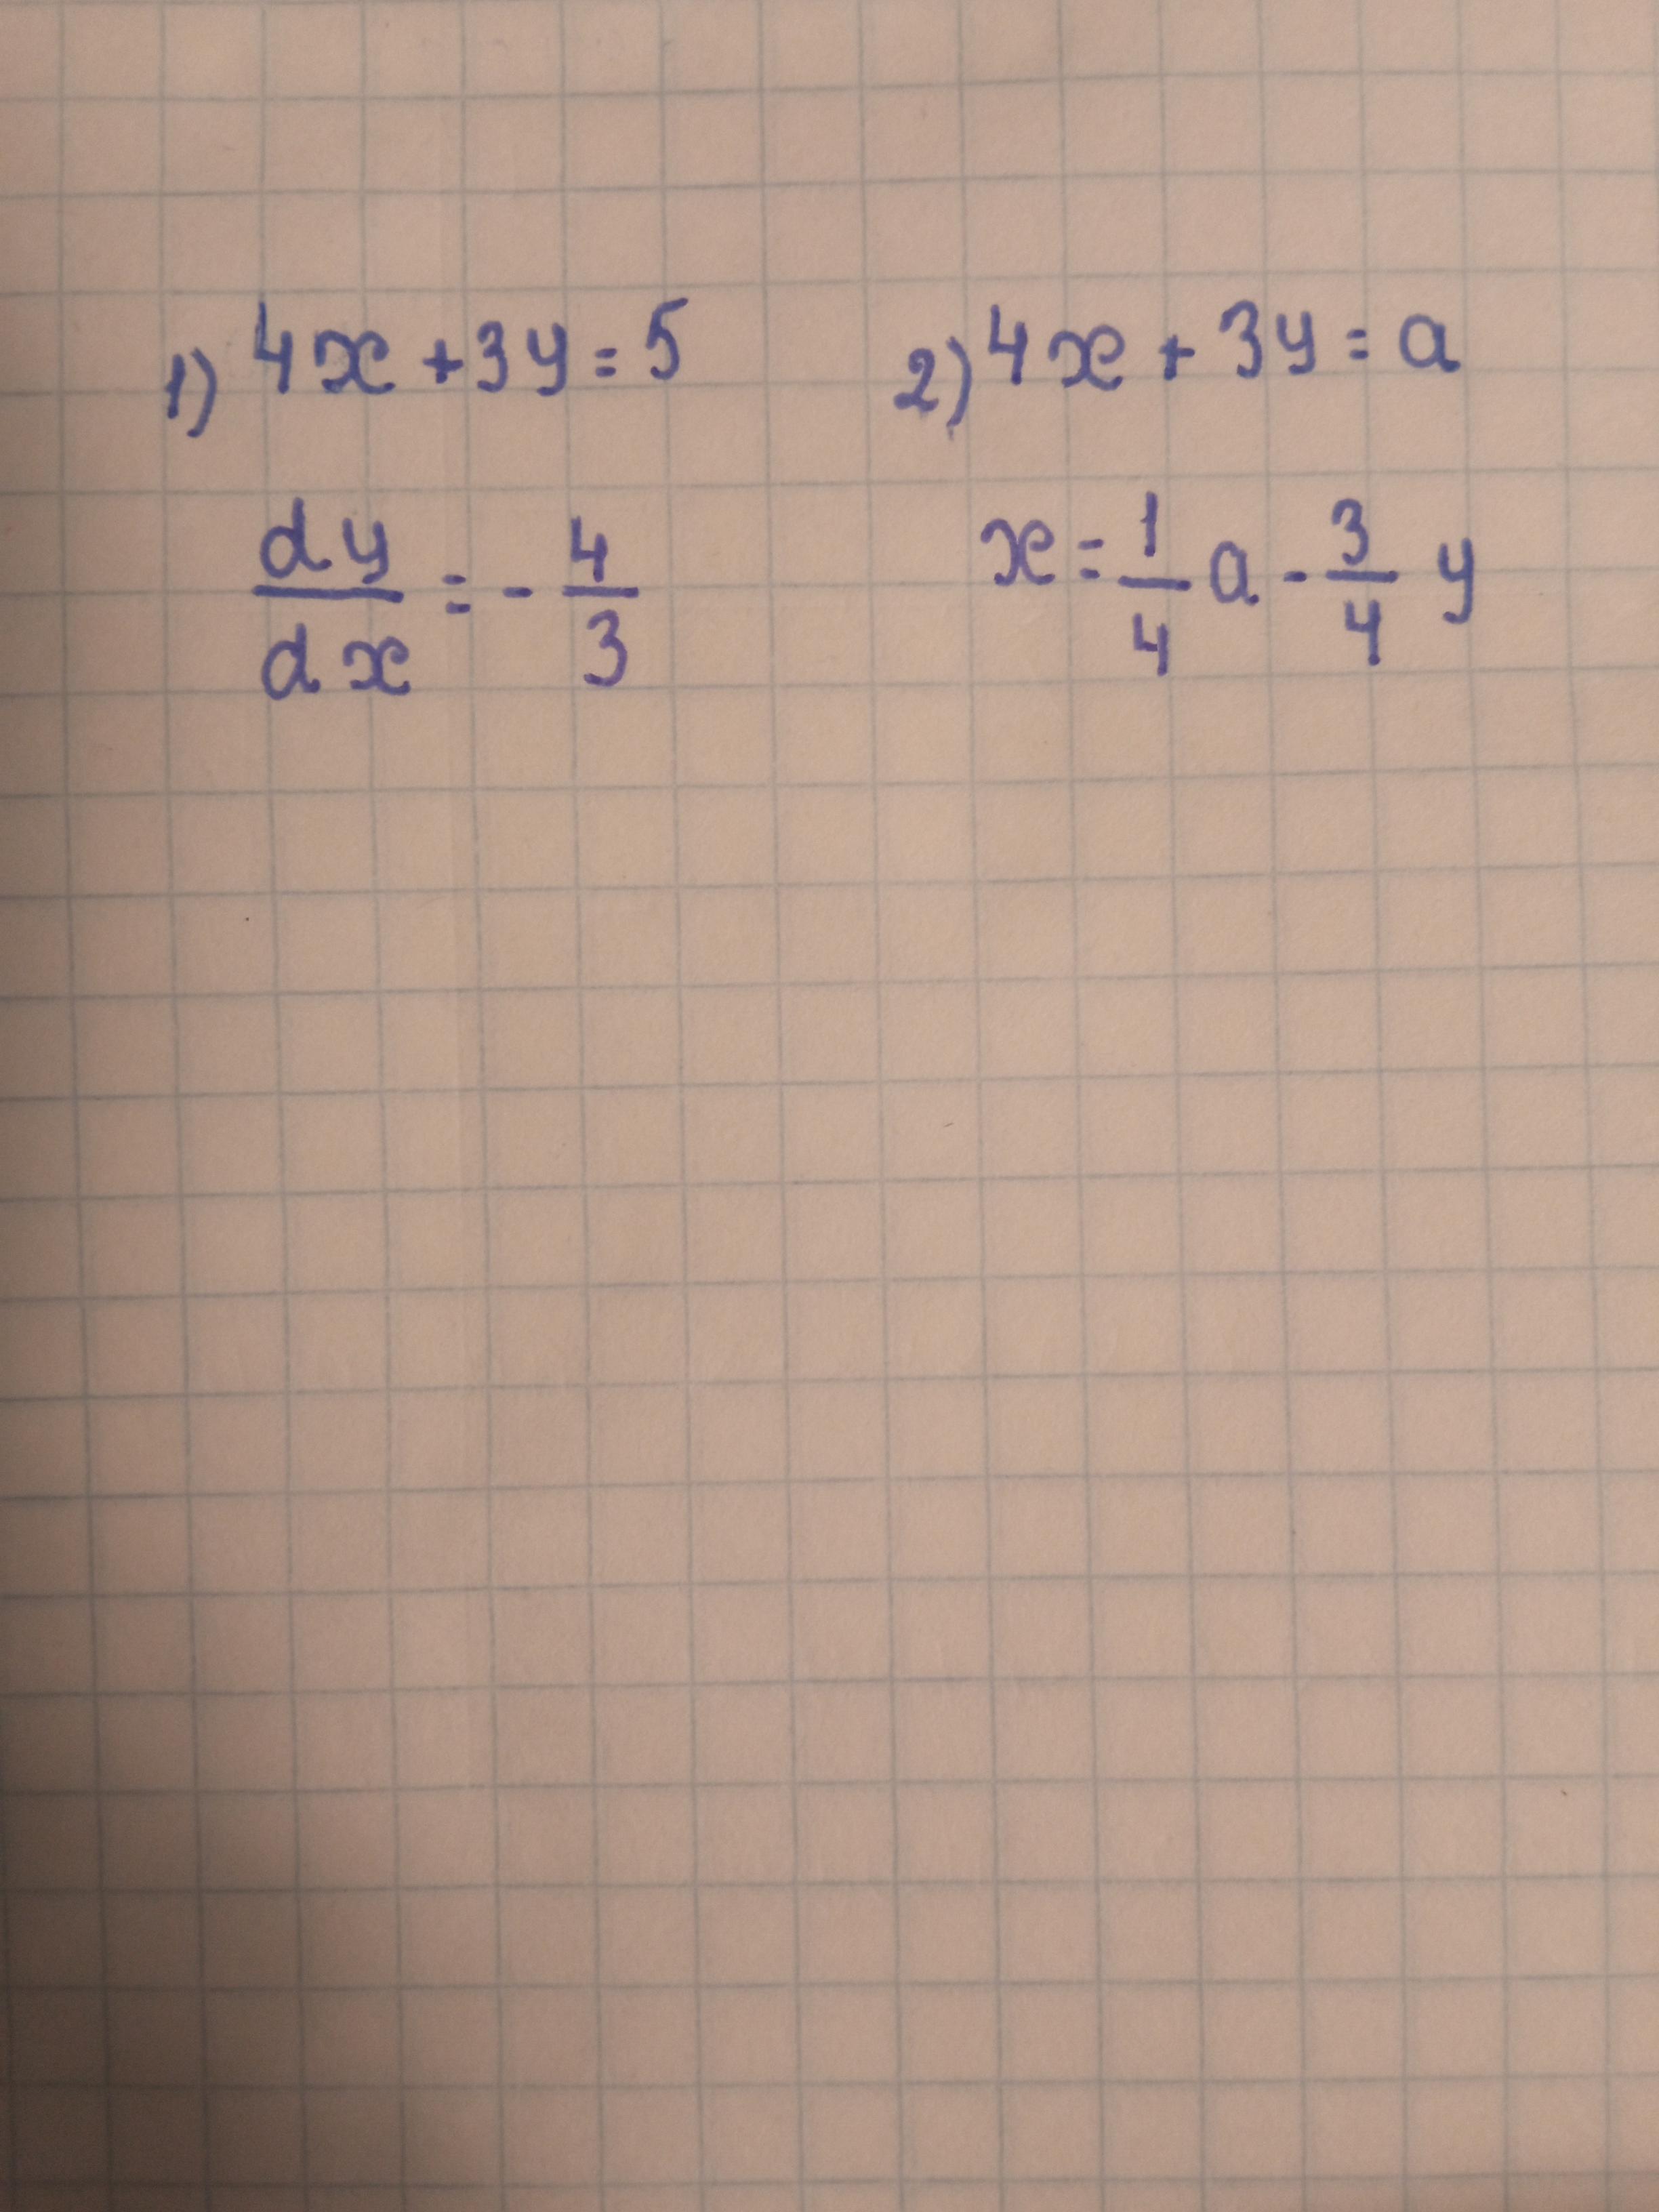 1) 4x+3y=5
dy/dx = - 4/3
2) 4x+3y=a
x = 1/4 a - 3/4 y